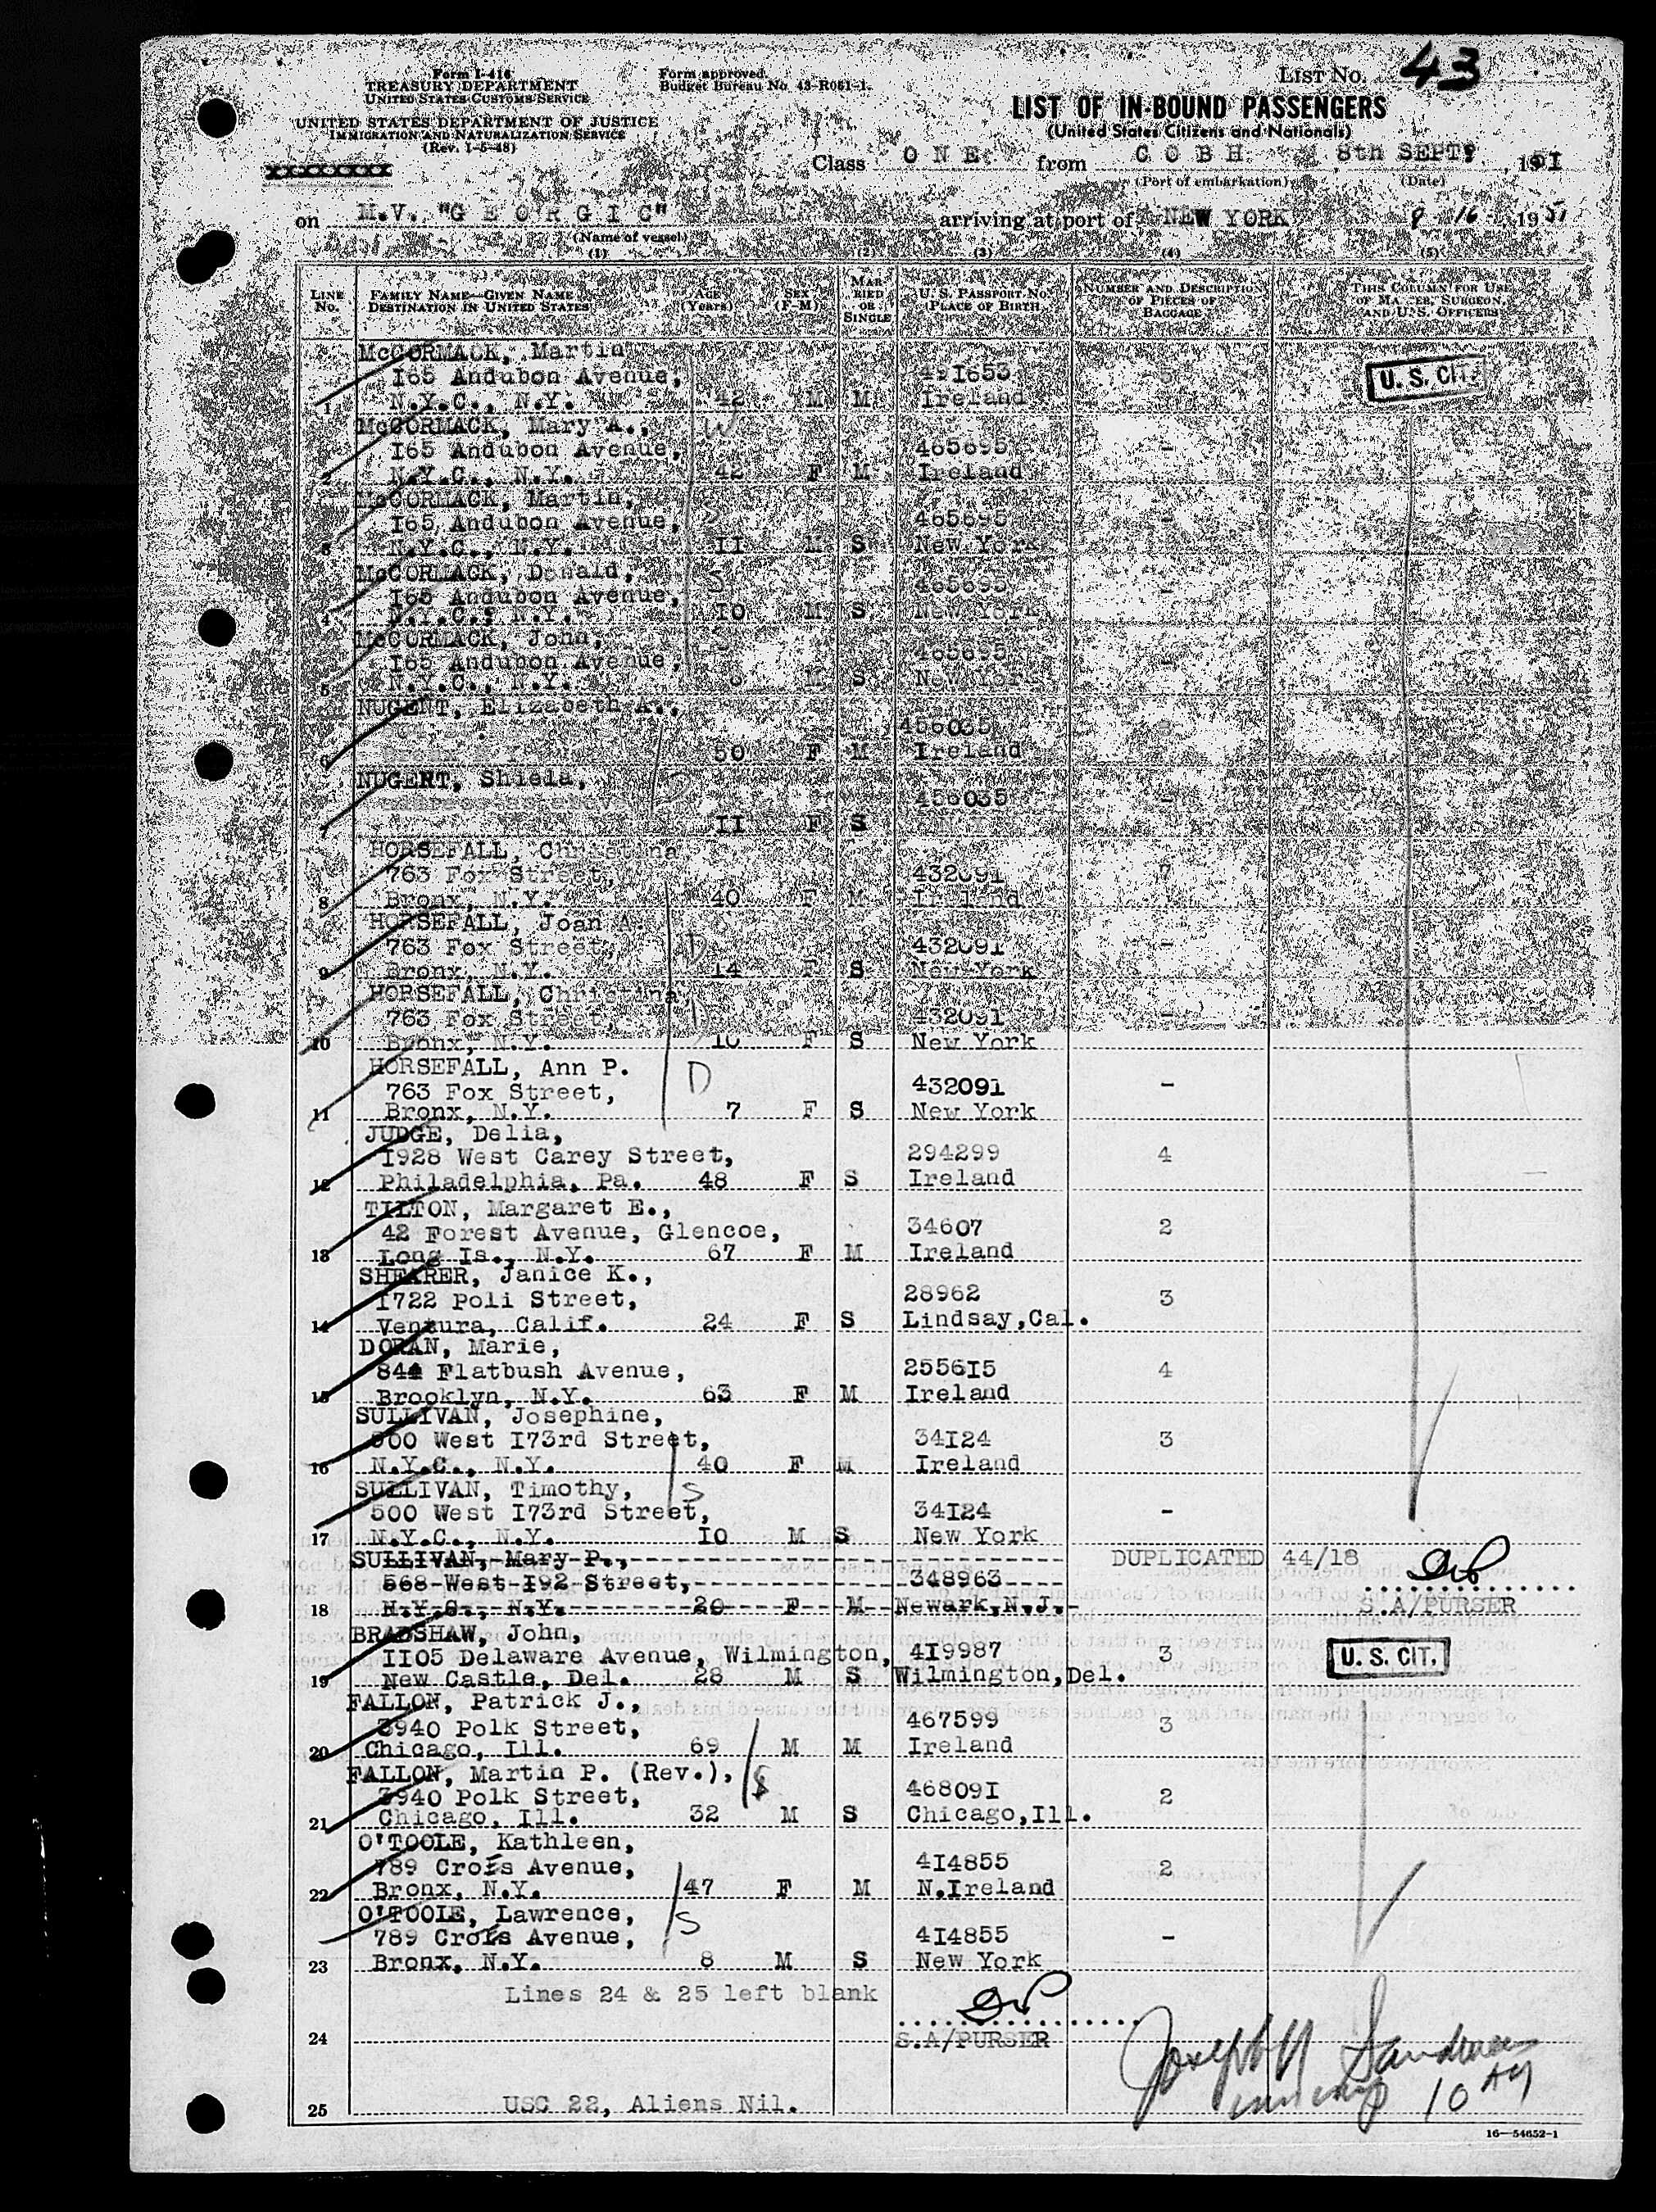 Form I-416
TREASURY DEPARTMENT
UNITED STATES CUSTOMS SERVICE
UNITED STATES DEPARTMENT OF JUSTICE
IMMIGRATION AND NATURALIZATION SERVICE
(Rev. 1-5-48)
XXXXXXXX
Form approved.
Budget Bureau No. 43-R061-1.
LIST No. 43
LIST OF IN-BOUND PASSENGERS
(United States Citizens and Nationals)
Class ONE from COBH 8th SEPT, 1951
(Port of embarkation) (Date)
on M.V. "GEORGIC" arriving at port of NEW YORK 9 - 16 -, 1951
(Name of vessel)
(1) (2) (3) (4) (5)
LINE No. FAMILY NAME—GIVEN NAME DESTINATION IN UNITED STATES AGE (Years) SEX (F-M) MARRIED OR SINGLE U. S. PASSPORT NO. PLACE OF BIRTH NUMBER AND DESCRIPTION OF PIECES OF BAGGAGE THIS COLUMN FOR USE OF MASTER, SURGEON, AND U. S. OFFICERS
McCORMACK, Martin
165 Andubon Avenue, 491653 U. S. CIT.
1 N.Y.C., N.Y. 42 M M Ireland
McCORMACK, Mary A., W
165 Andubon Avenue, 465695 -
2 N.Y.C., N.Y. 42 F M Ireland
McCORMACK, Martin, S
165 Andubon Avenue, 465695 -
3 N.Y.C., N.Y. 11 M S New York
McCORMACK, Donald, S
165 Andubon Avenue, 465695 -
4 N.Y.C., N.Y. 10 M S New York
McCORMACK, John,
165 Andubon Avenue, 465695 -
5 N.Y.C., N.Y. M S New York
NUGENT, Elizabeth A.,
456035
6 50 F M Ireland
NUGERT, Shiela, D
456035 -
7 11 F S
HORSEFALL, Christina
763 Fox Street, 432091 7
8 Bronx, N.Y. 40 F M Ireland
HORSEFALL, Joan A.
763 Fox Street, D 432091 -
9 Bronx, N.Y. 14 F S New York
HORSEFALL, Christina,
763 Fox Street, D 432091 -
10 Bronx, N.Y. 10 F S New York
HORSEFALL, Ann P. D
763 Fox Street, 432091 -
11 Bronx, N.Y. 7 F S New York
JUDGE, Delia,
1928 West Carey Street, 294299 4
12 Philadelphia, Pa. 48 F S Ireland
TILTON, Margaret E.,
42 Forest Avenue, Glencoe, 34607 2
13 Long Is., N.Y. 67 F M Ireland
SHEARER, Janice K.,
1722 Poli Street, 28962 3
14 Ventura, Calif. 24 F S Lindsay,Cal.
DORAN, Marie,
844 Flatbush Avenue, 255615 4
15 Brooklyn, N.Y. 63 F M Ireland
SULLIVAN, Josephine,
500 West 173rd Street, 34124 3
16 N.Y.C., N.Y. 40 F M Ireland
SULLIVAN, Timothy, S
500 West 173rd Street, 34124 -
17 N.Y.C., N.Y. 10 M S New York
SULLIVAN, Mary P., DUPLICATED 44/18
568 West 192 Street, 348963
18 N.Y.C., N.Y. 20 F M Newark,N.J. S.A/PURSER
BRADSHAW, John,
1105 Delaware Avenue, Wilmington, 419987 3 U. S. CIT.
19 New Castle, Del. 28 M S Wilmington,Del.
FALLON, Patrick J.,
3940 Polk Street, 467599 3
20 Chicago, Ill. 69 M M Ireland
FALLON, Martin P. (Rev.), S
3940 Polk Street, 468091 2
21 Chicago, Ill. 32 M S Chicago,Ill.
O'TOOLE, Kathleen,
789 Crois Avenue, 414855 2
22 Bronx, N.Y. 47 F M N.Ireland
O'TOOLE, Lawrence, S
789 Crois Avenue, 414855 -
23 Bronx, N.Y. 8 M S New York
Lines 24 & 25 left blank
24 S.A/PURSER
Joseph
10 AM
25 USC 22, Aliens Nil.
16—54652-1